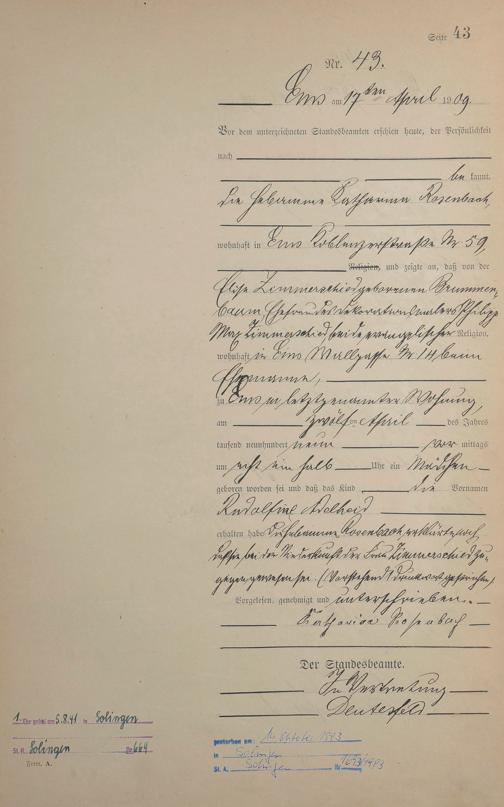 Seite 43
Nr. 43.
Ems am 17ten April 1909
Vor dem unterzeichneten Standesbeamten erschien heute, der Persönlichkeit
nach
be kannt,
die Hebamme Katharina Rosenbach,
wohnhaft in Ems Koblenzerstraße Nr 59,
Religion, und zeigte an, daß von der
Elise Zimmerschied geborenen Brummen-
baum, Ehefrau des Dekorationsmalers Philipp
Max Zimmerschied, beide evangelischer Religion,
wohnhaft in Ems, Wallgasse Nr 14, beim
Ehemanne,
zu Ems in letztgenannter Wohnung,
am zwölften April des Jahres
tausend neunhundert neun vor mittags
um acht ein halb Uhr ein Mädchen
geboren worden sei und daß das Kind die Vornamen
Rudolfine Adelheid
erhalten habe. Die Hebamme Rosenbach erklärte noch,
daß sie bei der Niederkunft der Frau Zimmerschied zu-
gegen gewesen sei. (Vorstehend 1 Druckwort gestrichen)
Vorgelesen, genehmigt und unterschrieben.
Katharina Rosenbach
Der Standesbeamte.
In Vertretung
1. Ehe geschl. am 5.8.41 in Solingen
St. A. Solingen Nr. 664
Form. A.
gestorben am: Oktober
in Solingen
St. A. Solingen Nr.